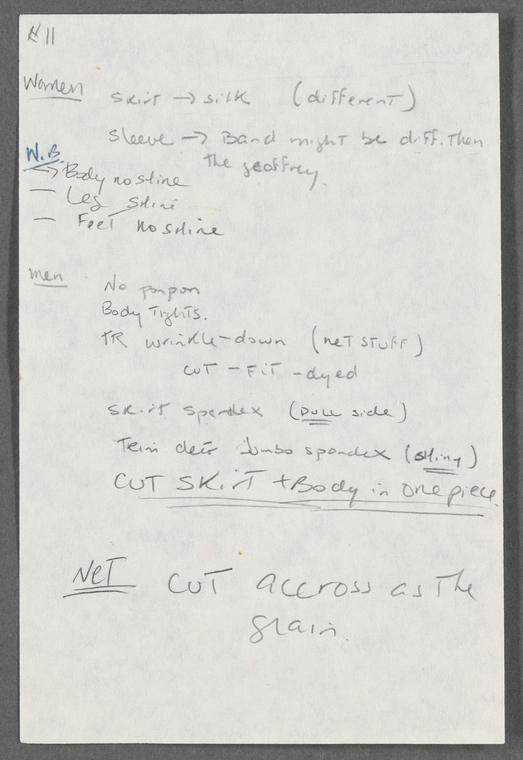 #11
Women skirt → silk (different)
sleeve → Band might be diff. then
the geoffrey.
W.B.
→ Body no shine
— Leg shine
— Feet no shine
men No pompon
Body Tights.
TR wrinkle-down (net stuff)
cut - Fit - dyed
skirt spandex (Dull side)
Jumbo spandex (shiny)
CUT SKirT + Body in one piece
NeT CUT accross as The
grain.